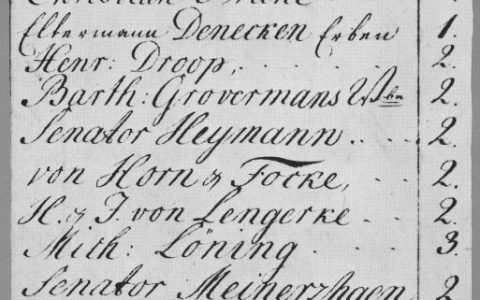 Christian
Eltermann Denecken Erben 1.
Henr: Droop, 2.
Barth: Grovermans Wbe 2.
Senator Heymann . . . 2.
von Horn & Focke, . 2.
H. & J. von Lengerke . . 2.
Mich: Löning . . . 3.
Senator Meinerzhagen 2